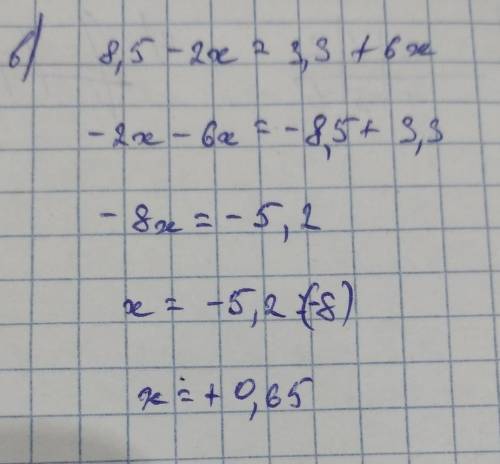 б) 8,5 - 2x = 3,3 + 6x
-2x - 6x = -8,5 + 3,3
-8x = -5,2
x = -5,2 : (-8)
x = +0,65